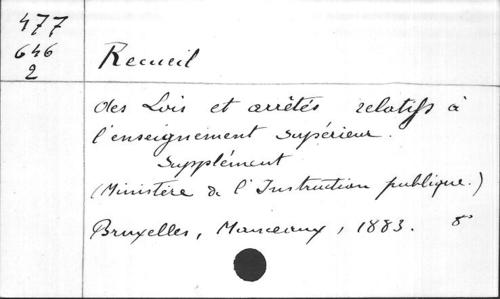 477
646
2
Recueil
des Lois et arrêtés relatifs à
l'enseignement supérieur.
Supplément
(Ministère de l'Instruction publique.)
Bruxelles, Manceaux, 1883. 8°